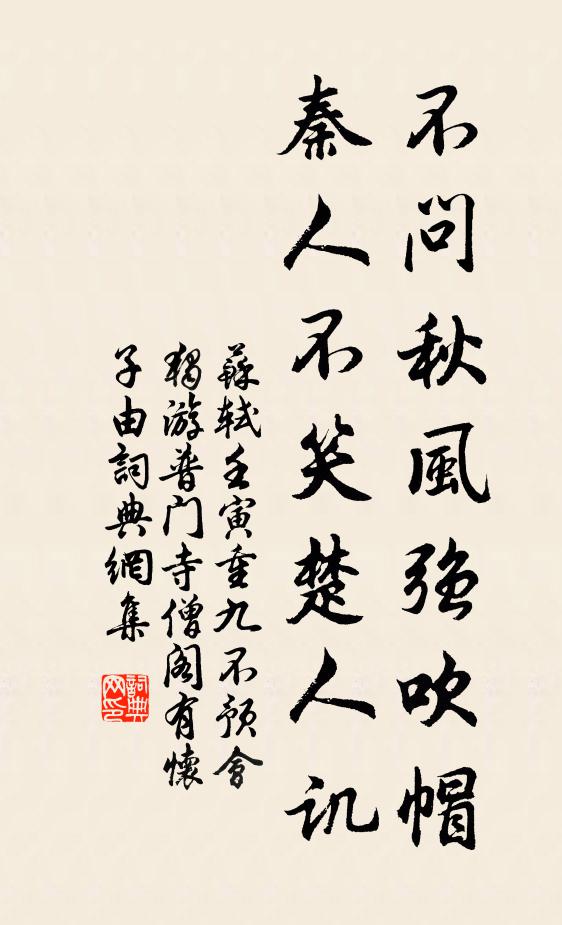 不問秋風強吹帽
秦人不笑楚人讥
蘇軾壬寅重九不預會
獨游普门寺僧阁有懷
子由詞典網集
詞典网印